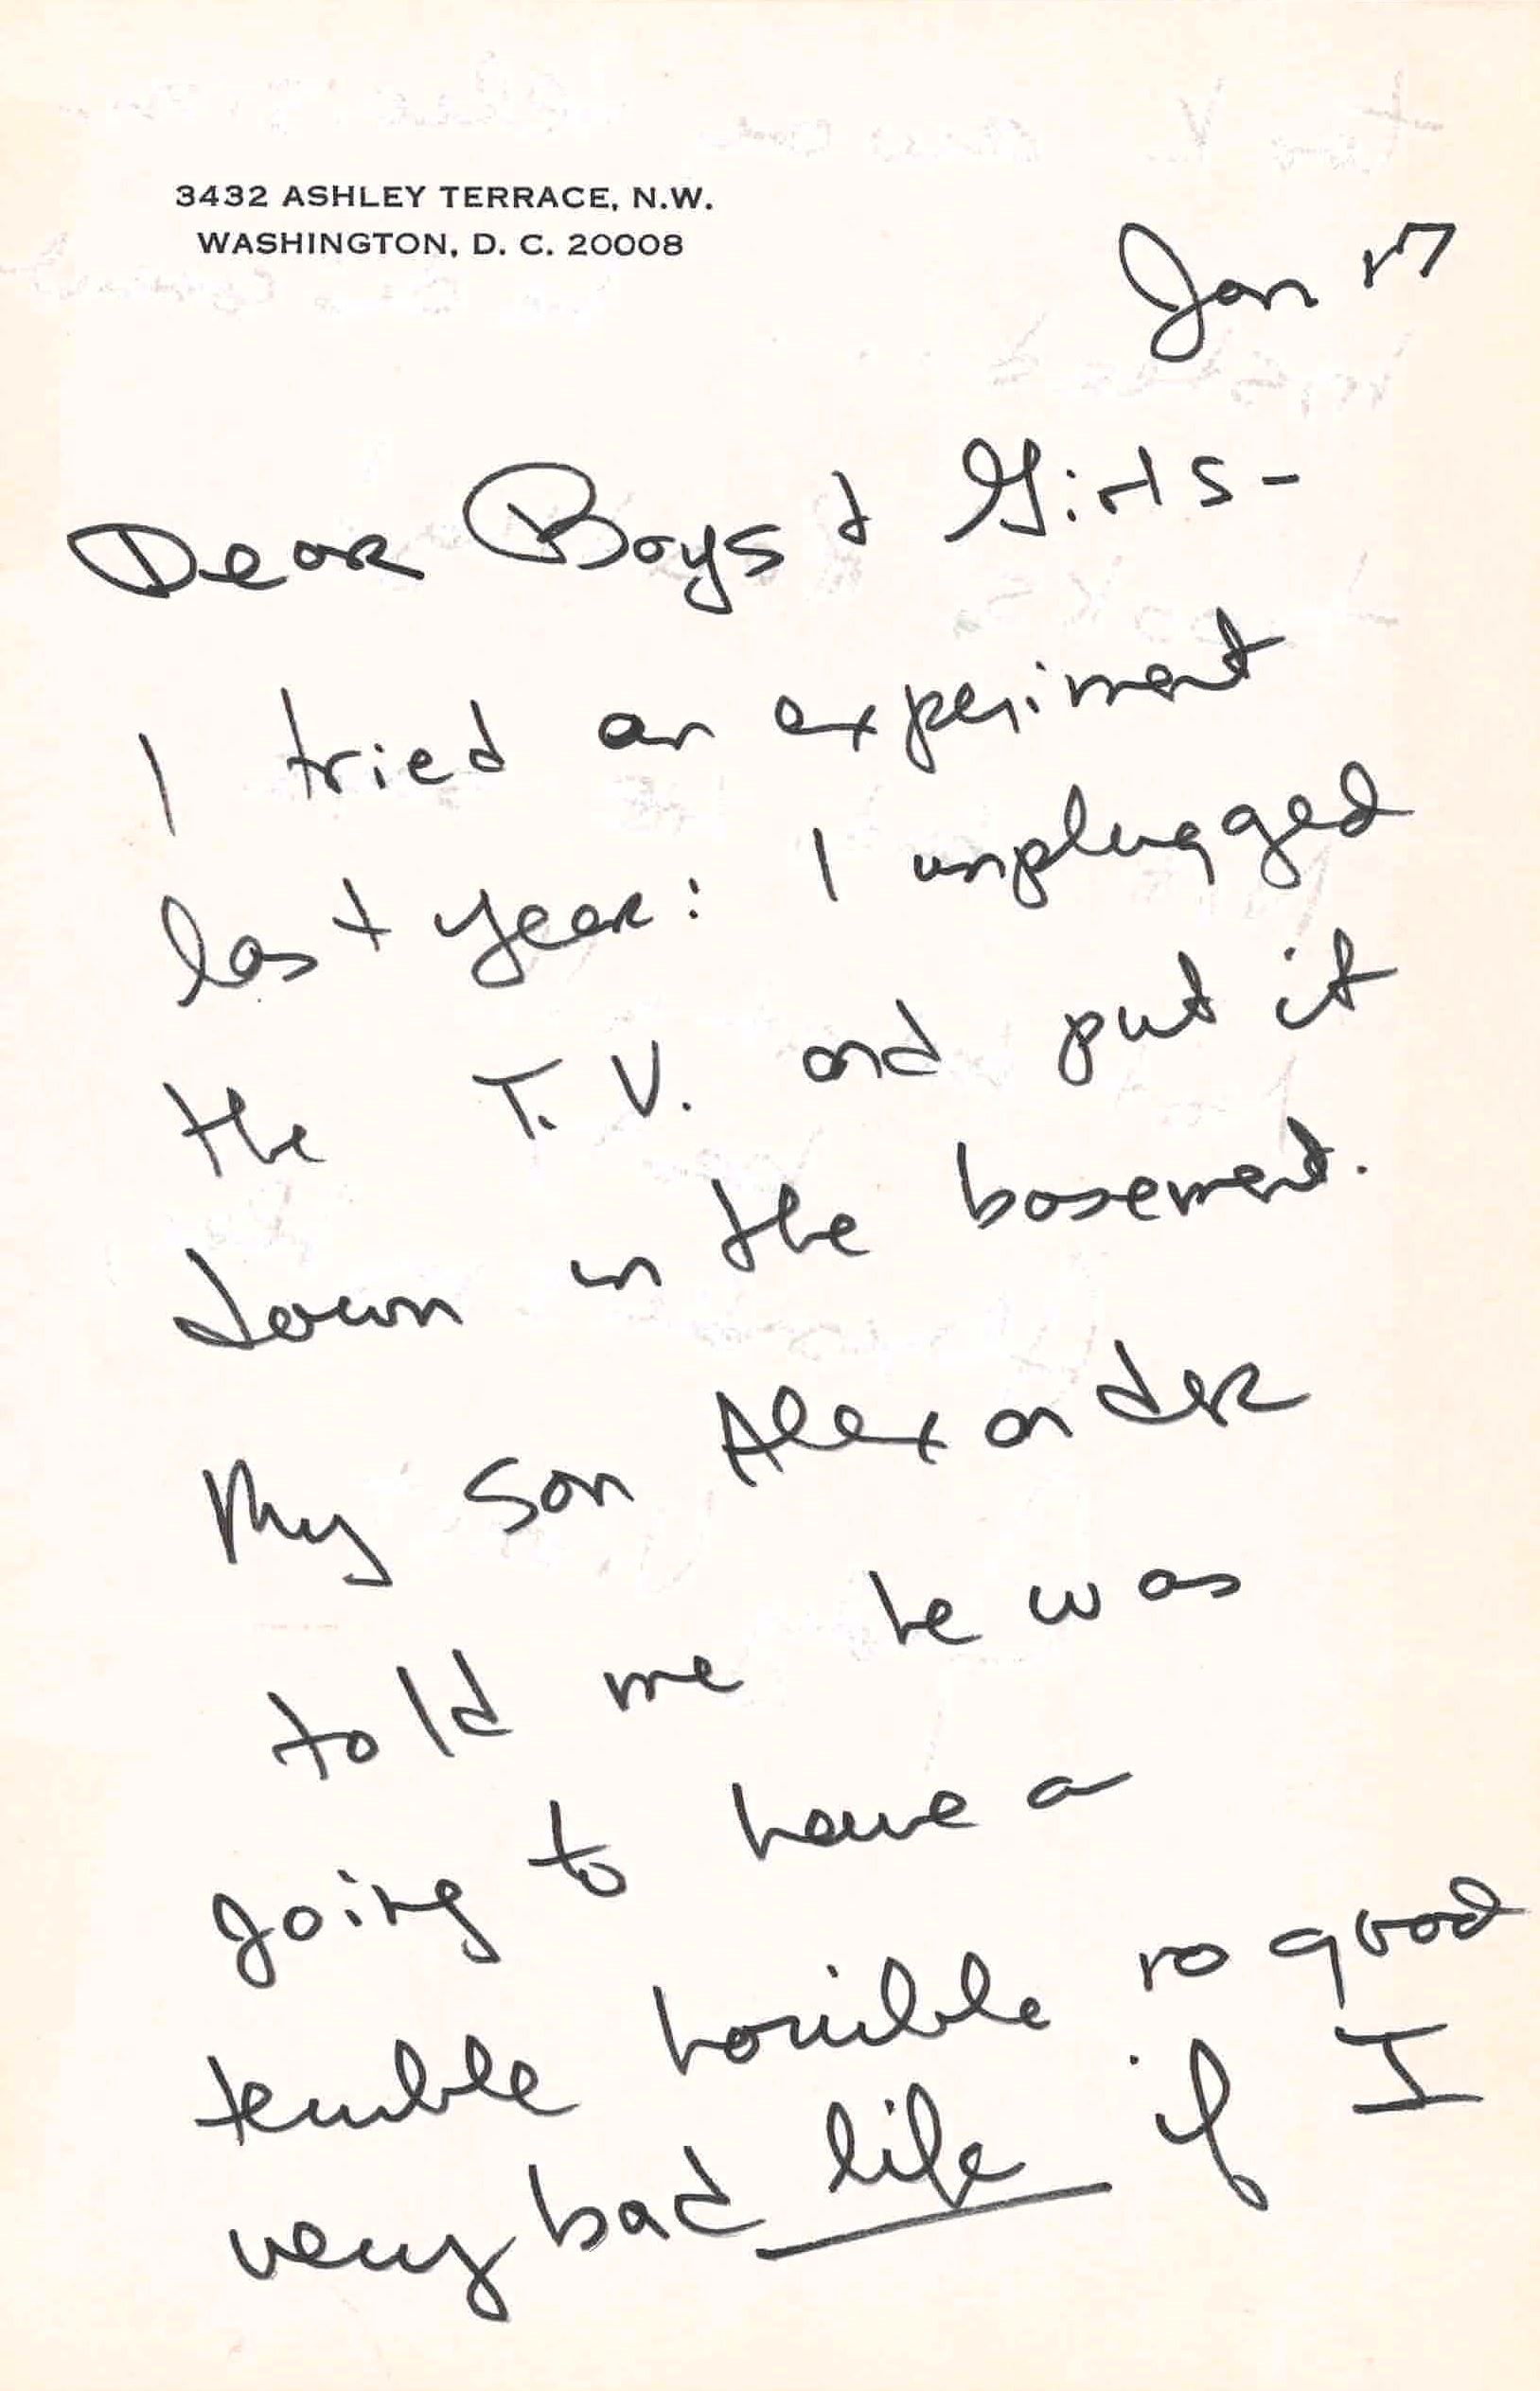 3432 ASHLEY TERRACE, N.W.
WASHINGTON, D. C. 20008
Jan 17
Dear Boys & Girls-
I tried an experiment
last year: I unplugged
the T.V. and put it
down in the basement.
My son Alexander
told me he was
going to have a
terrible horrible no good
very bad life if I